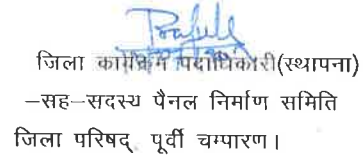 जिला कार्यक्रम पदाधिकारी(स्थापना)
–सह–सदस्य पैनल निर्माण समिति
जिला परिषद्, पूर्वी चम्पारण।